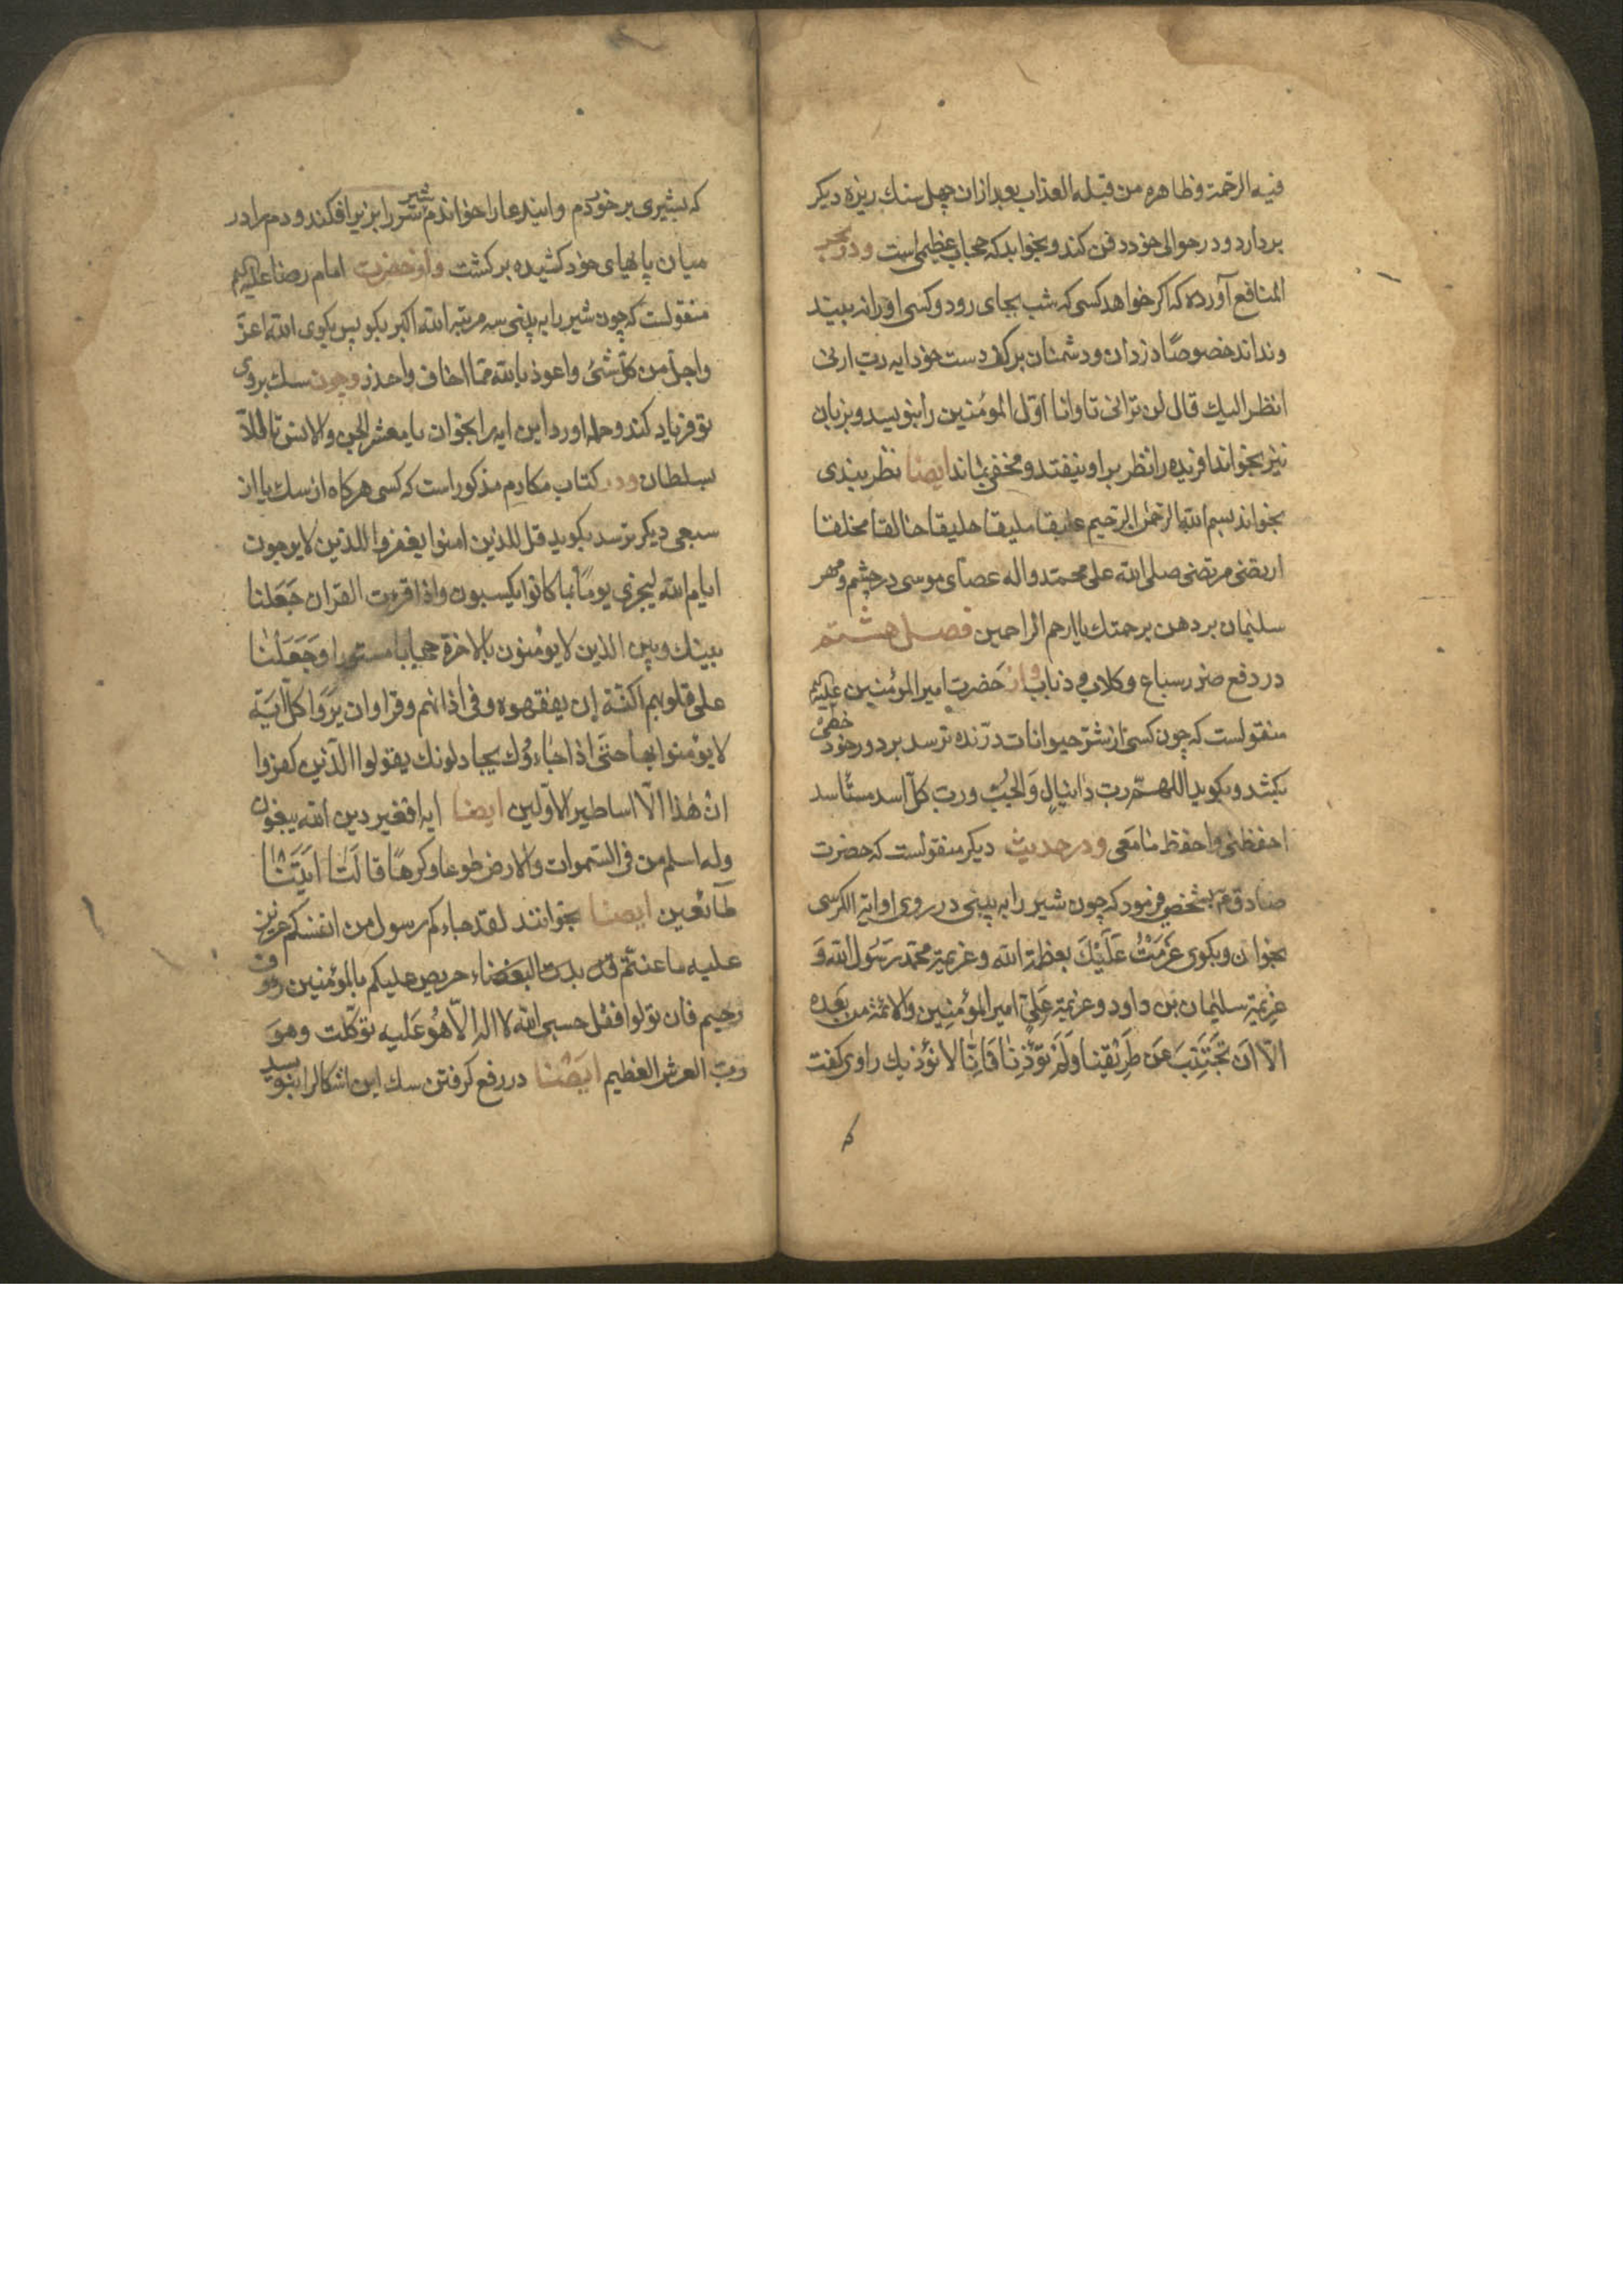 فیه الرحمة و ظاهره من قبله العذاب بعد ازان چهل سنك ریزه دیکر
بردارد و در حوالی خود دفن کند و بخوابد که حجاب عظیمی است و در بحر
المنافع آورده که اکر خواهد کسی که شب بجای رود و کسی او را نه بیند
و نداند خصوصًا دزدان و دشمنان بر کف دست خود ایه رب ارنی
انظر الیك قال لن ترانی تا و انا اوّل المؤمنین را بنویسد و بزبان
نیز بخواند افریده را نظر بر او نیفتد و مخفی بماند ایضا نظر بندی
بخواند بسم الله الرحمن الرحیم علیقا ملیقا خلیقا خالقا مخلقا
ارتضی مرتضی صلی الله علی محمد و اله عصای موسی در چشم و مهر
سلیمان بر دهن برحمتك یا ارحم الراحمین فصل هشتم
در دفع ضرر سباع و کلاب و ذئاب و از حضرت امیر المؤمنین علیه
منقولست که چون کسی از شرّ حیوانات درّنده ترسد بر دور خود خطی
بکشد و بکوید اللهمّ رب دانیال وَالجُبّ و رب کلّ اسد مستأسد
احفظنی واحفظ مَا مَعی و در حدیث دیکر منقولست که حضرت
صادق ع بشخصی فرمود که چون شیر را به بینی در روی او ایة الکرسی
بخوان و بکوی عَزَمْتُ عَلَیْكَ بعظمة الله و عزیمة محمد رَسُول الله وَ
عزیمة سلیمان بن داود و عزیمة عَلیّ امیر المؤمنین والائمة من بَعده
الّا ان تَجَتَّنبَ عَن طَرِیقِنا وَلَم تؤذِنا فَانّا لا نؤذیك راوی کفت
که بشیری برخوردم و ایندعا را خواندم شیر سر را بزیر افکند و دم را در
میان پاهای خود کشیده برکشت و از حضرت امام رضا علیه
منقولست که چون شیر را به بینی سه مرتبه الله اکبر بکو پس بکوی الله اعزّ
واجلّ من کلّ شئ و اعوذ بالله ممّا اخاف و احذر و چون سك بروی
تو فریاد کند و حمله اورد این ایه را بخوان یا معشر الجن والانس تا الّا
بسلطان و در کتاب مکارم مذکور است که کسی هرکاه از سك یا از
سبعی دیکر ترسد بکوید قل للذین امنوا یغفروا للذین لا یرجون
ایام الله لیجزی یومًا بما کانوا یکسبون واذا قرءت القران جَعَلنا
بینك و بین الذین لا یؤمنون بالاخرة حجابا مستورا وَجَعَلْنا
علی قلوبهم اکنّة ان یفقهوه و فی اذانهم وقرا وان یَرَوا کلّ ایَة
لا یؤمنوا بها حتّی اذا جَاءُوك یجادلونك یقولوا الّذین کفروا
ان هٰذا الّا اساطیر الاوّلین ایضا ایه افغیر دین الله یبغون
وله اسلم من فی السّموات والارض طوعا وکرهًا قالَتا اتَیْنا
طآئعین ایضا بخوانند لقد جاءکم رسول من انفسکم عزیز
علیه ما عنتّم قد بدت البغضاء حریص علیکم بالمؤمنین رؤف
رحیم فان تولوا فقل حسبی الله لا اله الّا هُوَ عَلیه توکّلت وهو
ربّ العرش العظیم ایضا در رفع کرفتن سك این اشکال را بنویسد